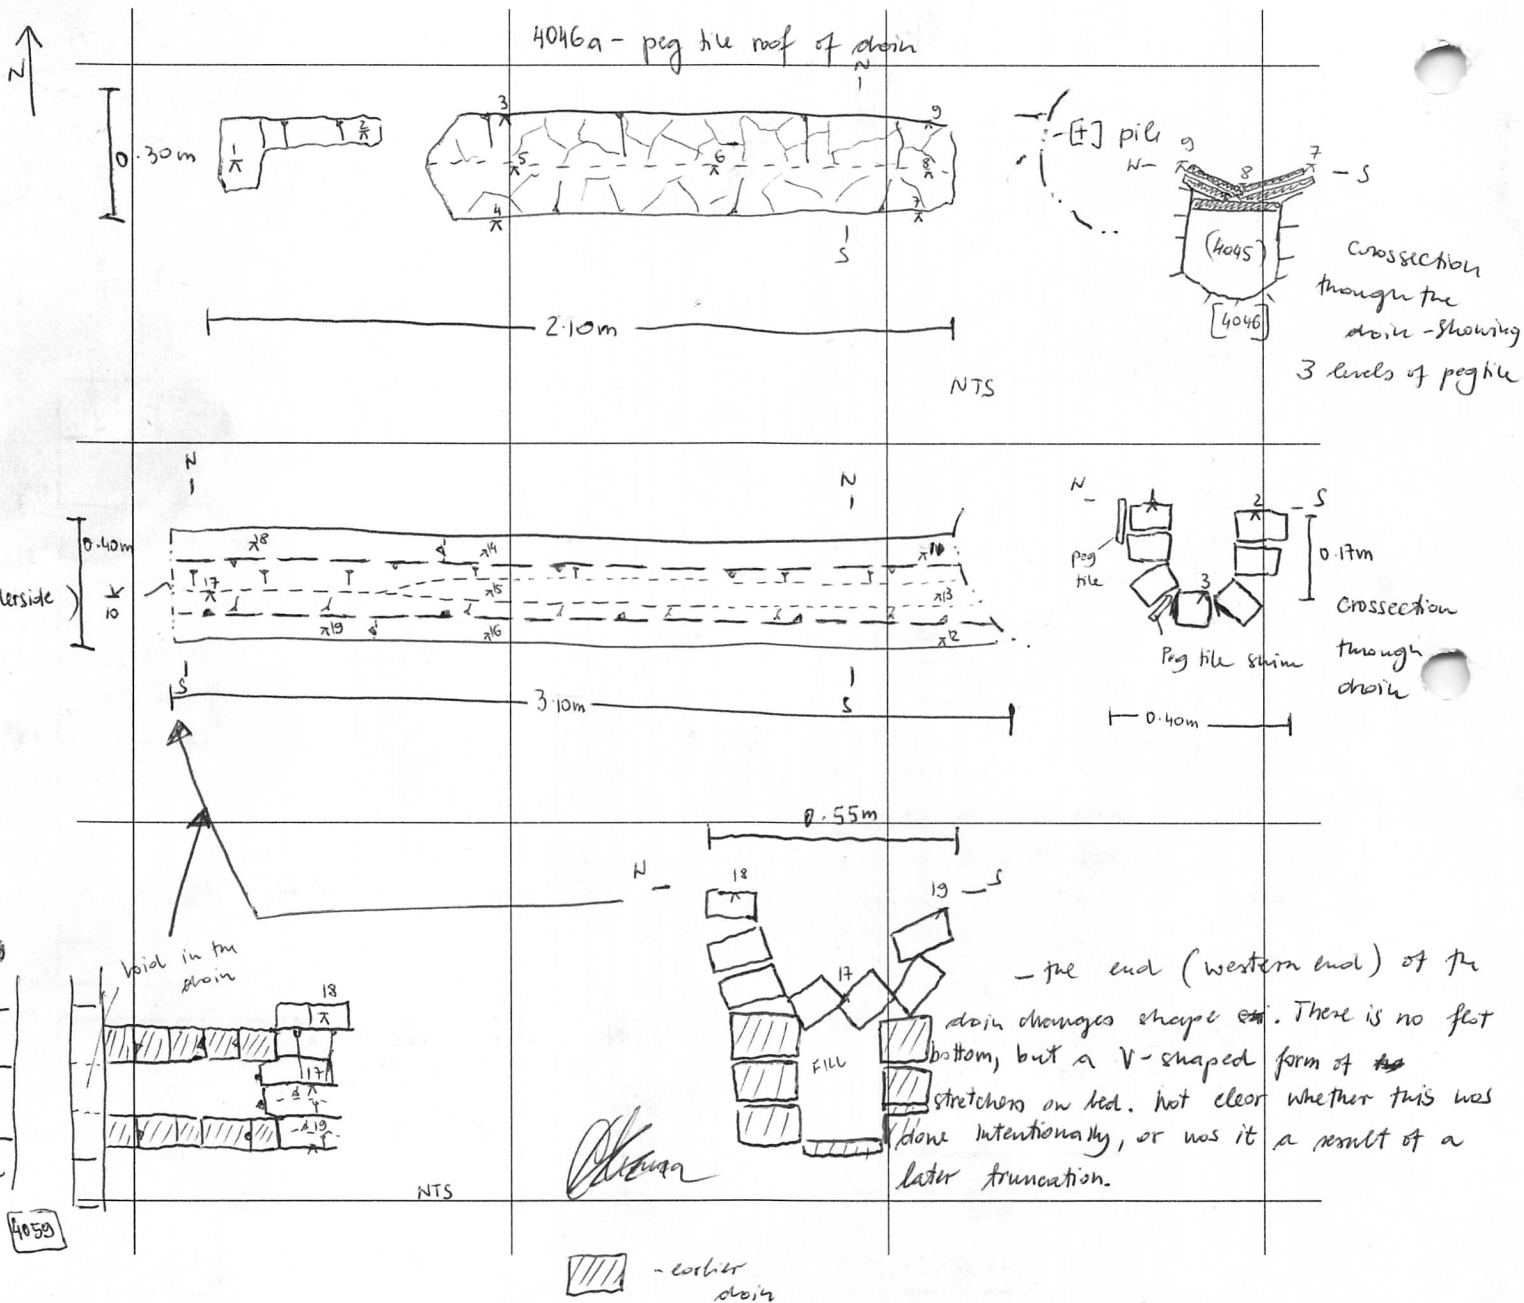 4046a - peg tile roof of drain
N
N
0.30m
1
2
3
4
5
6
7
8
9
S
[+] pile
9
N-
8
7
- S
(4045)
[4046]
Crossection
through the
drain - showing
3 levels of peg tile
2.10m
NTS
N
N
0.40m
18
14
17
15
13
19
16
12
S
S
3.10m
N
1
2
S
0.17m
peg
tile
3
Peg tile shim
Crossection
through
drain
0.40m
0.55m
N
18
19
S
17
FILL
void in the
drain
18
17
19
NTS
4059
- the end (western end) of the
drain changes shape. There is no flat
bottom, but a V-shaped form of
stretchers on bed. Not clear whether this was
done intentionally, or was it a result of a
later truncation.
- earlier
drain